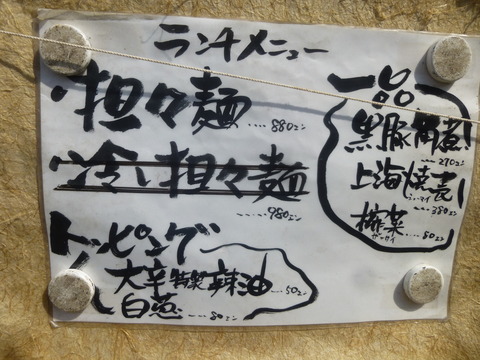 ランチメニュー
・担々麺
....880エン
・冷し担々麺
....980エン
トッピング
大辛特製辣油....50エン
白葱....80エン
一品
黒豚角煮
...290エン
上海焼売
シューマイ
...380エン
搾菜
ザーサイ
...80エン